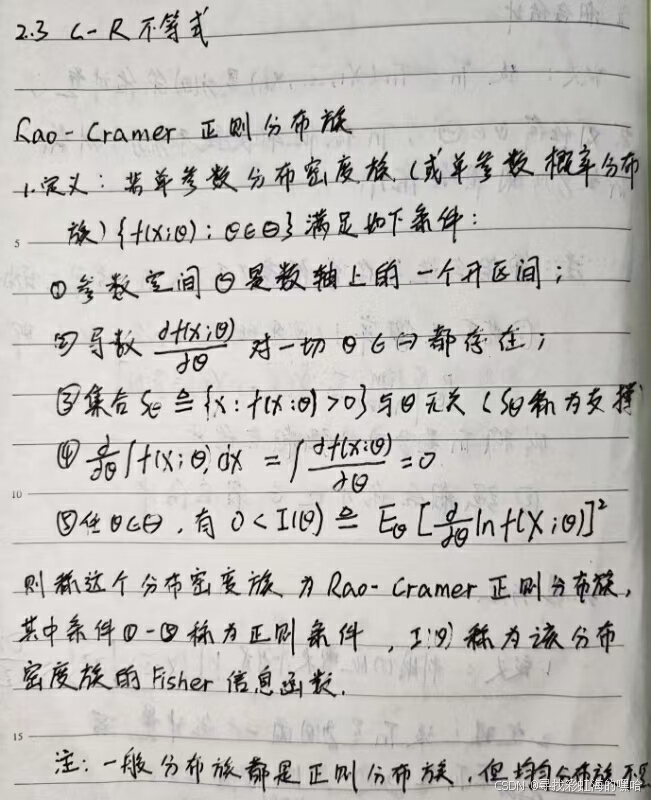 2.3 C-R 不等式
Rao-Cramer 正则分布族
1.定义：若单参数分布密度族（或单参数概率分布
族）{f(x;θ): θ∈Θ}满足如下条件：
5
① 参数空间 Θ 是数轴上的一个开区间；
② 导数 ∂f(x;θ)/∂θ 对一切 θ∈Θ 都存在；
③ 集合 Sθ ≙ {x: f(x;θ)>0}与θ无关（Sθ称为支撑
④ ∂/∂θ ∫f(x;θ)dx = ∫ ∂f(x;θ)/∂θ = 0
10
⑤ 任 θ∈Θ，有 0 < I(θ) ≙ Eθ [∂/∂θ ln f(X;θ)]²
则称这个分布密度族为 Rao-Cramer 正则分布族，
其中条件①-⑤称为正则条件，I(θ)称为该分布
密度族的 Fisher 信息函数.
15
注：一般分布族都是正则分布族，但均匀分布族不是
CSDN @寻找彩虹海的嘿哈